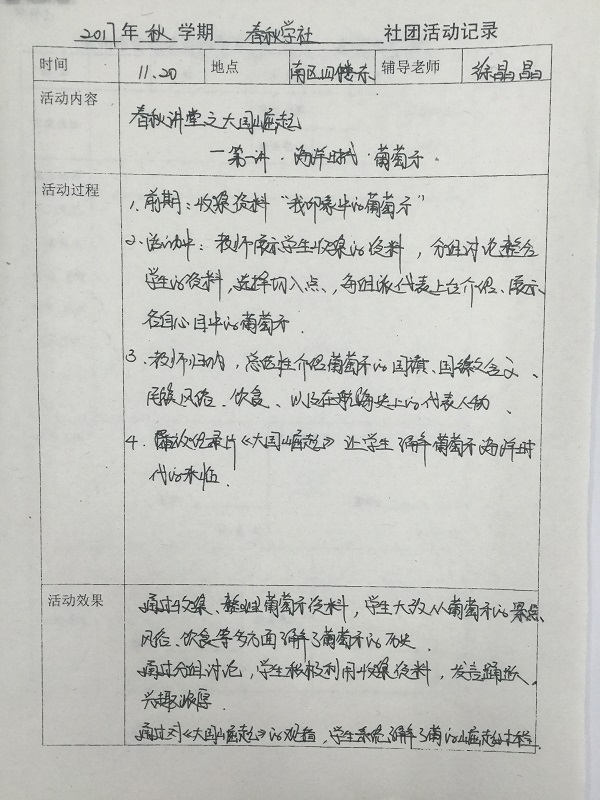 2017年 秋 学期 春秋学社 社团活动记录
时间 11.20 地点 南区四楼东 辅导老师 徐晶晶
活动内容 春秋讲堂之大国崛起
—第一讲·海洋时代·葡萄牙
活动过程 1、前期：收集资料“我印象中的葡萄牙”
2、活动中：教师展示学生收集的资料，分组讨论整合
学生的资料，选择切入点、每组派代表上台介绍、展示
各自心目中的葡萄牙.
3、教师归纳，总结性介绍葡萄牙的国旗、国徽含义、
民族风俗、饮食、以及在航海史上的代表人物、
4、播放纪录片《大国崛起》让学生了解葡萄牙海洋时
代的来临.
活动效果 通过收集、整理葡萄牙资料，学生大致从葡萄牙的景点、
风俗、饮食等多方面了解了葡萄牙的历史.
通过分组讨论，学生积极利用收集资料，发言踊跃、
兴趣浓厚.
通过对《大国崛起》的观看，学生系统了解了葡的崛起过程.